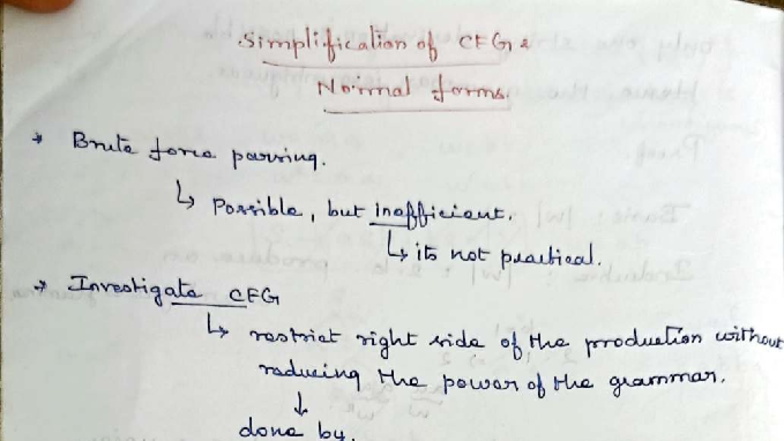 Simplification of CFG &
Normal forms.
* Brute force parsing.
↳ Possible, but inefficient.
↳ its not practical.
→ Investigate CFG
↳ restrict right side of the production without
reducing the power of the grammar.
↓
done by.